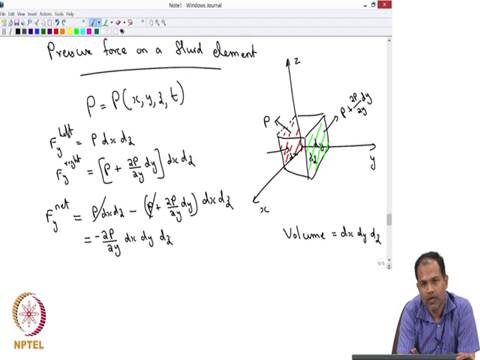 Note1 - Windows Journal
Pressure force on a fluid element
P = P(x, y, z, t)
F_y^left = P dx dz
F_y^right = [P + ∂P/∂y dy] dx dz
F_y^net = P dx dz - (P + ∂P/∂y dy) dx dz
= -∂P/∂y dx dy dz
z
P
P + ∂P/∂y dy
dy
dz
dx
y
x
Volume = dx dy dz
NPTEL